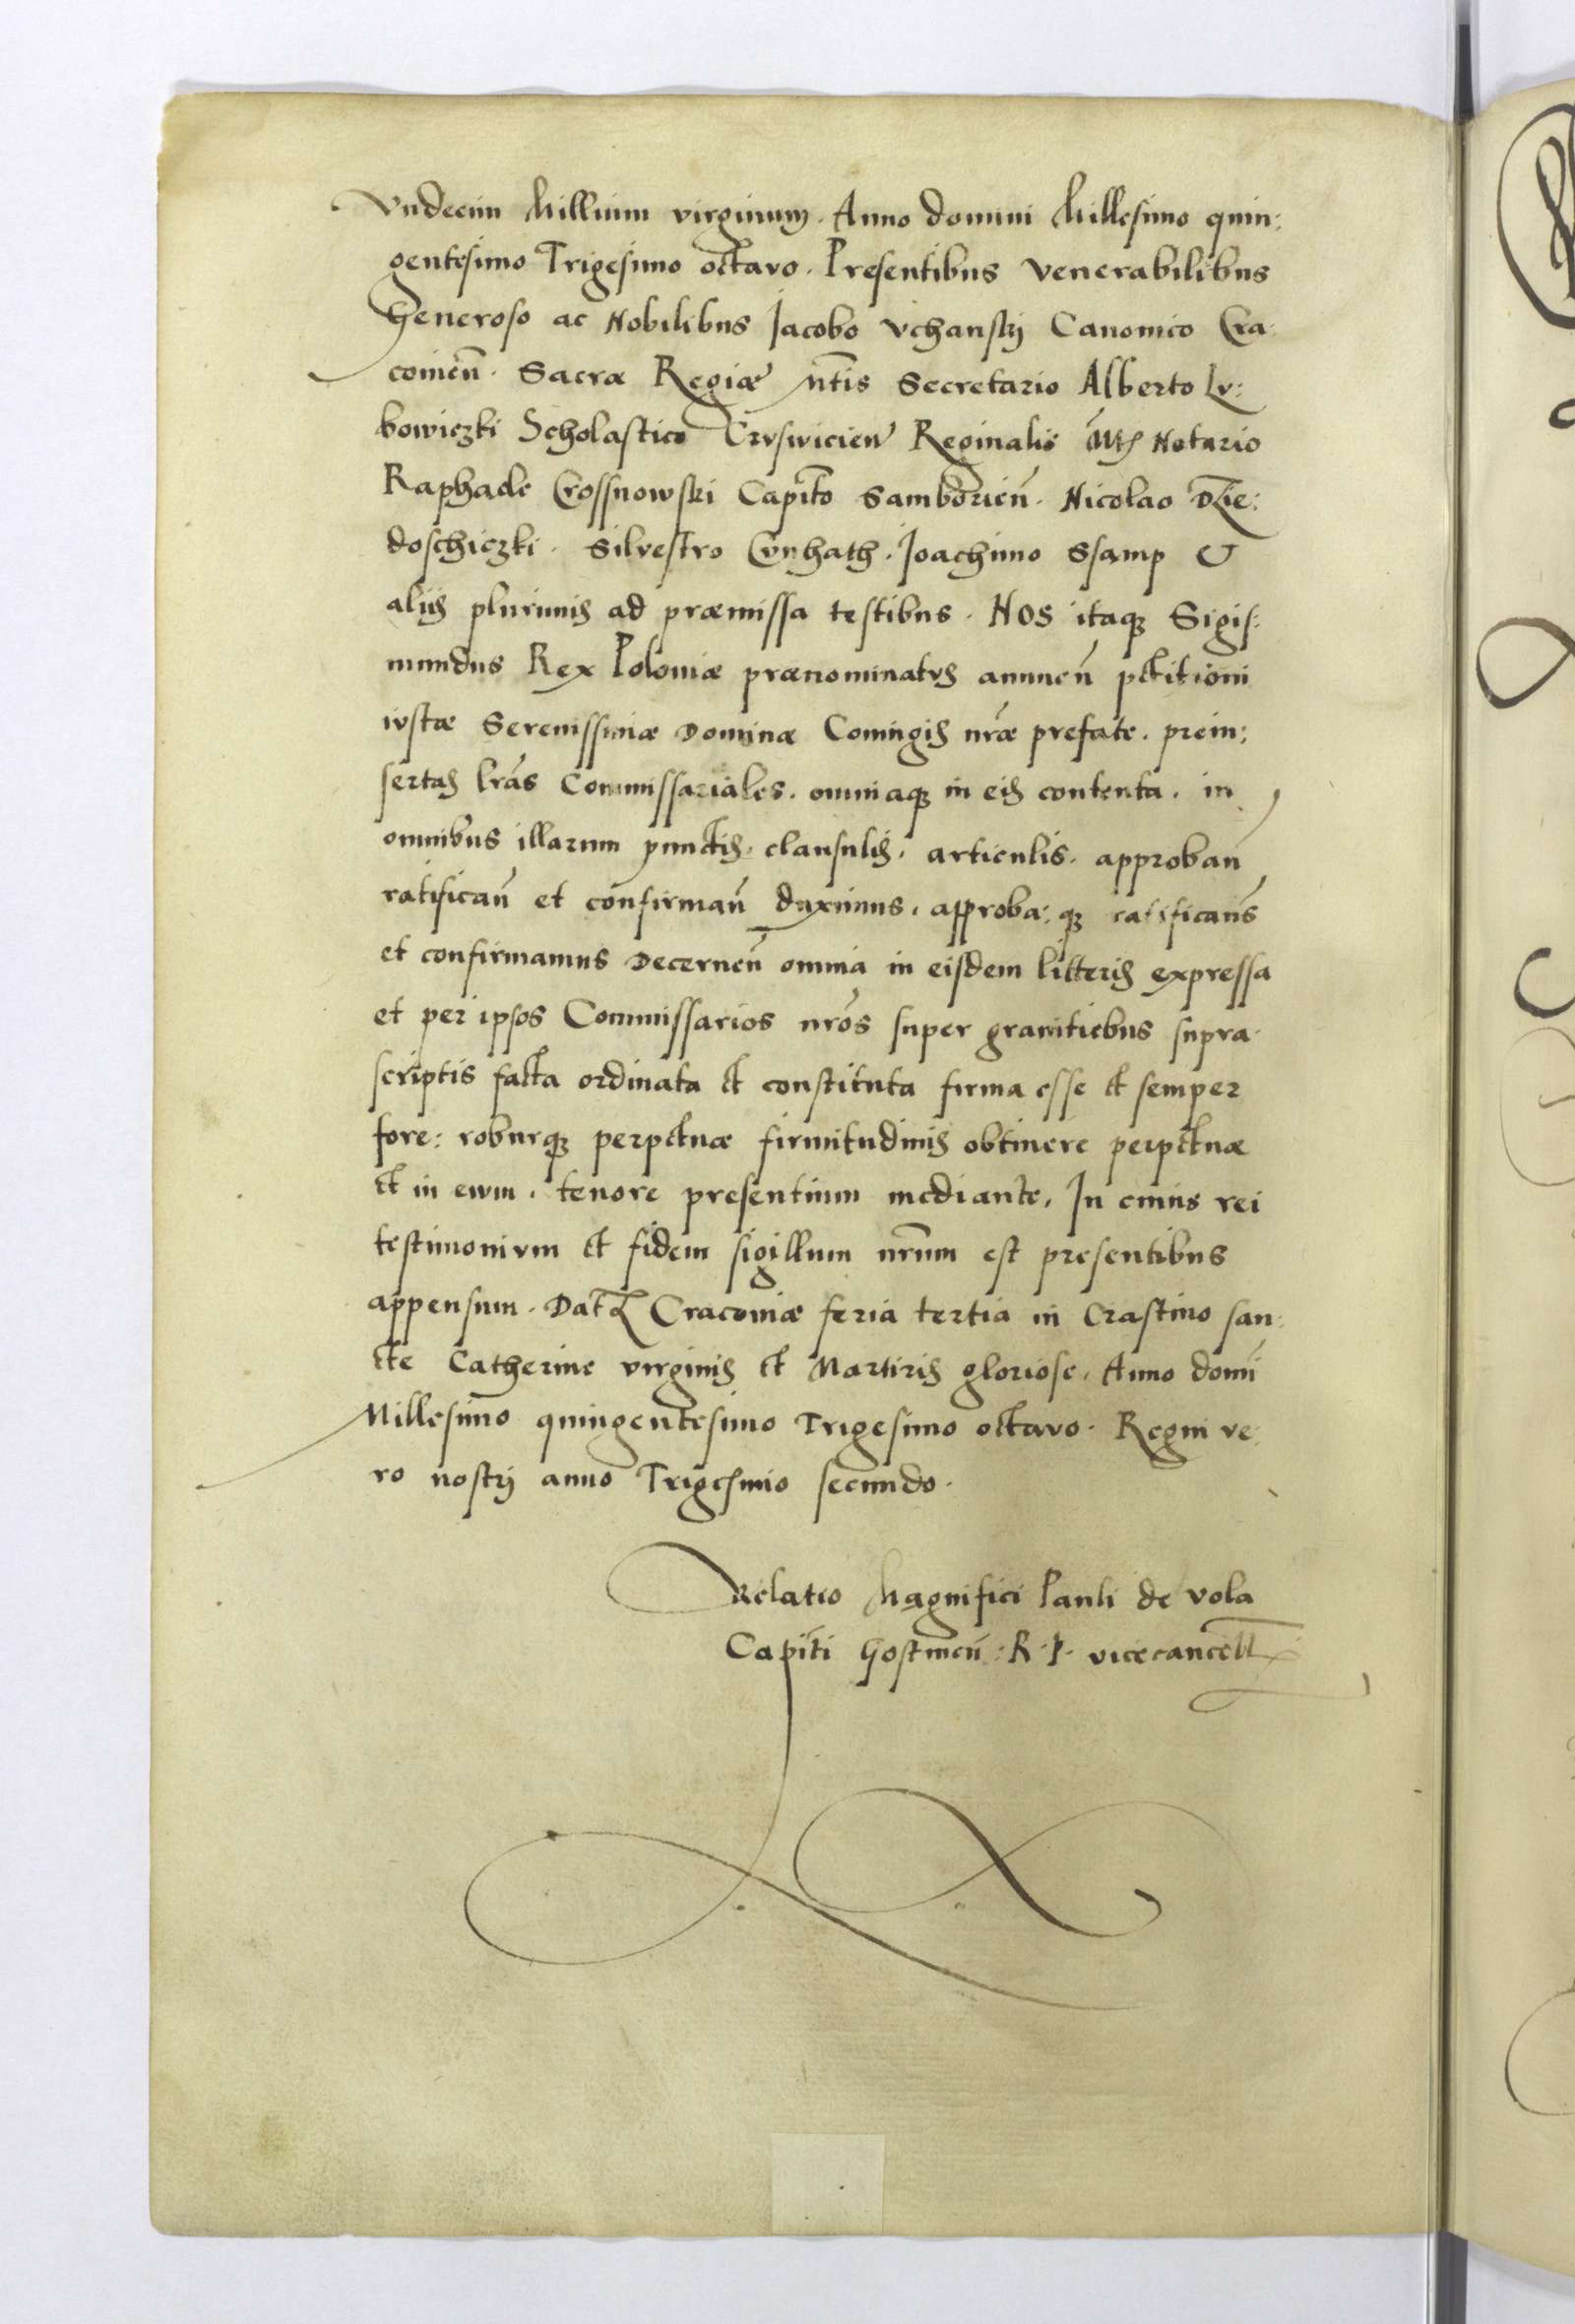 Vndecim Millium virginum. Anno domini Millesimo quin:
gentesimo Trigesimo octavo. Presentibus Venerabilibus
Generoso ac Nobilibus Jacobo Vchanskÿ Canonico Cra:
couień. Sacræ Regiæ Mtis Secretario Alberto Lv:
bowiczki Scholastico Crvswicień Reginalis Mtis Notario
Raphaele Crossnowski Capito Samborień. Nicolao Dzie:
doschiczki. Silvestro Cvnhath. Joachimo Ssamp &
aliis plurimis ad præmissa testibus. Nos itaq; Sigis:
mundus Rex Poloniæ prænominatvs annuen̄ petitioni
ivstæ Serenissimæ Dominæ Coniugis nræ prefate. prein:
sertas lras Commissariales. omniaq; in eis contenta. in
omnibus illarum punctis. clausulis. articulis. approban̄
ratifican̄ et confirman̄ duximus. approba: q; ratificam̄s
et confirmamus Decernen̄ omnia in eisdem litteris expressa
et per ipsos Commissarios nros super granitiebus supra
scriptis facta ordinata et constituta firma esse et semper
fore: roburq; perpetuæ firmitudinis obtinere perpetuæ
et in evm. tenore presentium mediante. In cuius rei
testimonivm et fidem sigillum nrum est presentibus
appensum. Dat Cracouiæ feria tertia in Crastino san:
cte Catherine virginis et Martiris gloriose. Anno domi
Millesimo quingentesimo Trigesimo octavo. Regni ve:
ro nostrj anno Trigesimo secundo.
Relatio Magnifici Pauli de Vola
Capiti Gostinen̄: R. P. vicecancell